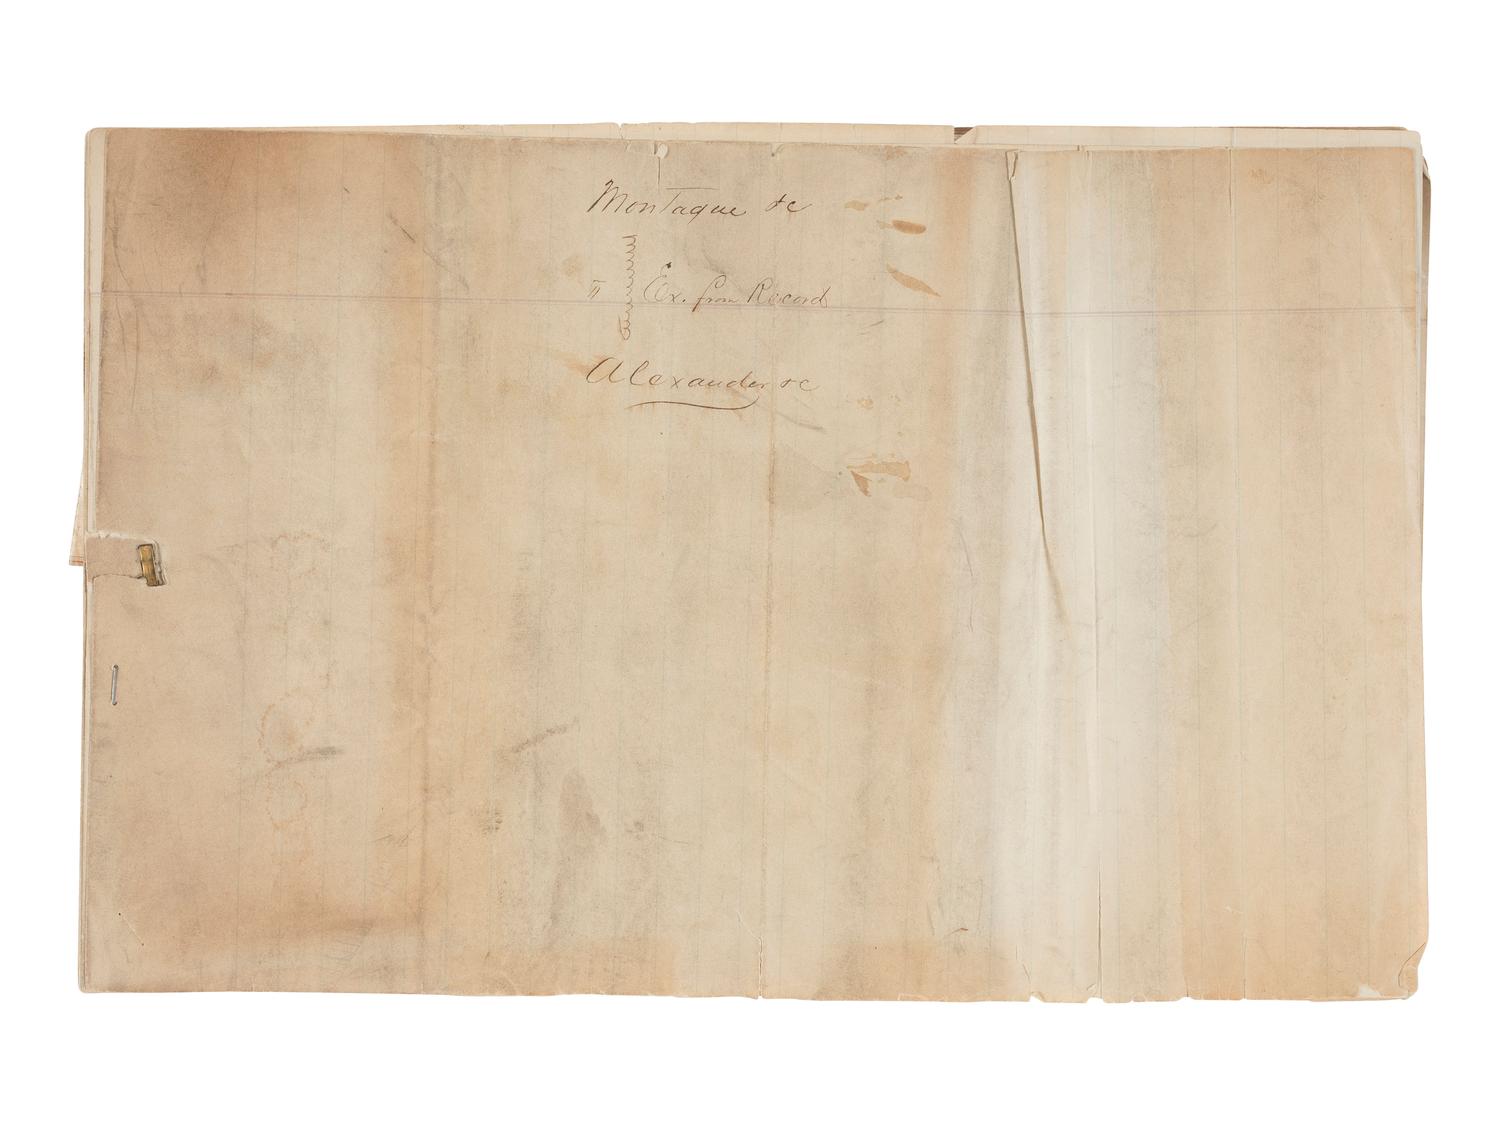 Montague &c
" Ex. from Record
Alexander &c